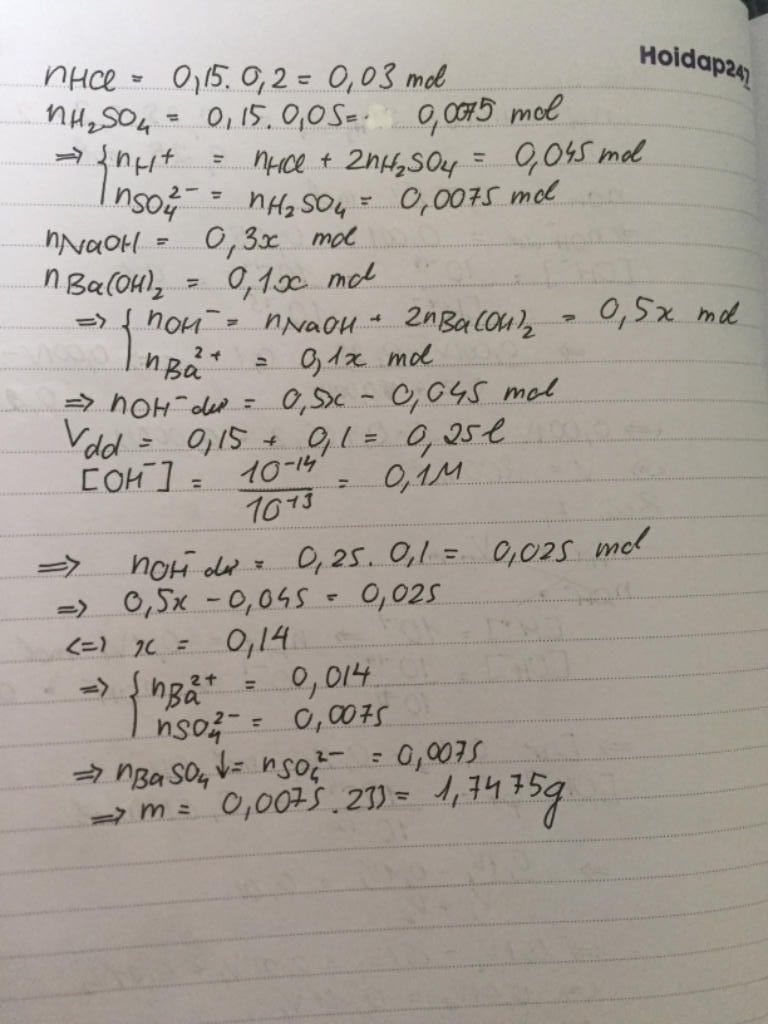 Hoidap247
nHCl = 0,15. 0,2 = 0,03 mol
nH₂SO₄ = 0,15. 0,05 = 0,0075 mol
=> { nH⁺ = nHCl + 2nH₂SO₄ = 0,045 mol
nSO₄²⁻ = nH₂SO₄ = 0,0075 mol
nNaOH = 0,3x mol
nBa(OH)₂ = 0,1x mol
=> { nOH⁻ = nNaOH + 2nBa(OH)₂ = 0,5x mol
nBa²⁺ = 0,1x mol
=> nOH⁻ dư = 0,5x - 0,045 mol
Vdd = 0,15 + 0,1 = 0,25l
[OH⁻] = 10⁻¹⁴ / 10⁻¹³ = 0,1M
=> nOH⁻ dư = 0,25. 0,1 = 0,025 mol
=> 0,5x - 0,045 = 0,025
<=> x = 0,14
=> { nBa²⁺ = 0,014
nSO₄²⁻ = 0,0075
=> nBaSO₄↓ = nSO₄²⁻ = 0,0075
=> m = 0,0075 . 233 = 1,7475g